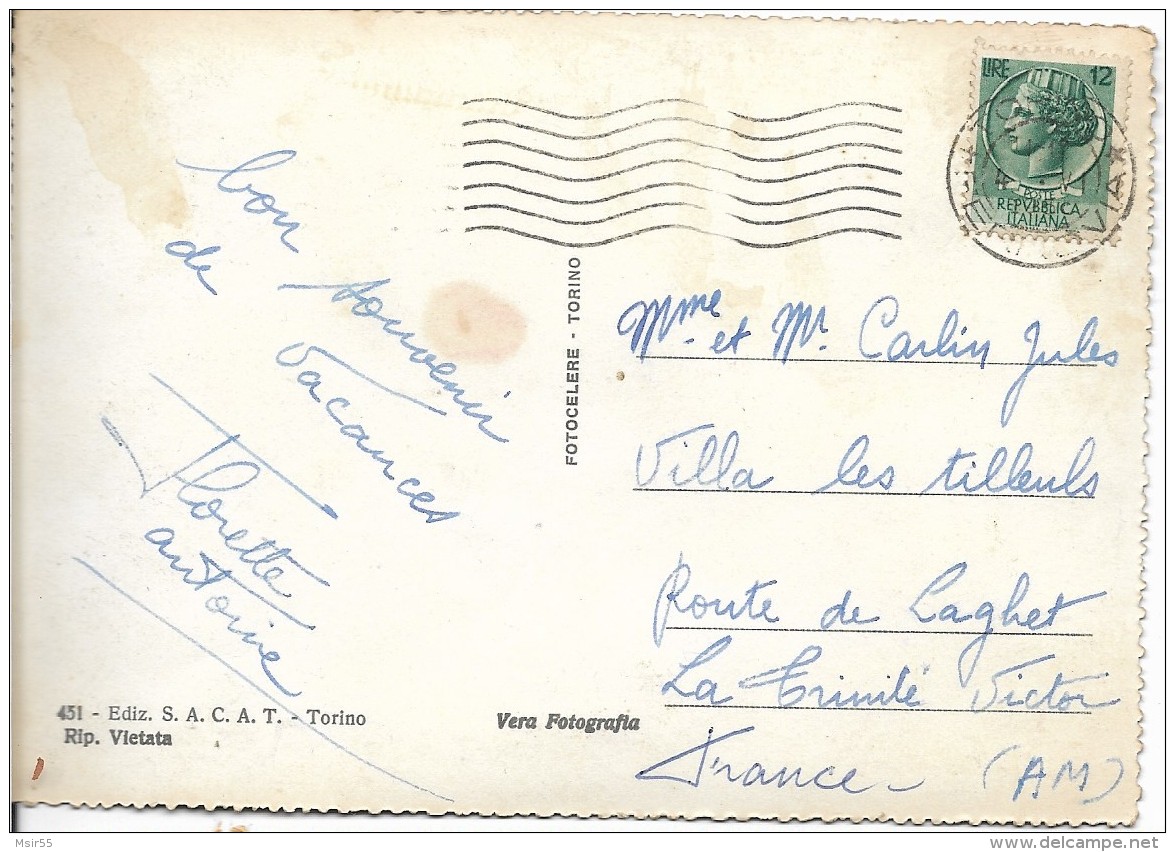 LIRE 12
POSTE
REPVBBLICA
ITALIANA
bon souvenir
de vacances
Florette
antoine
FOTOCELERE - TORINO
Mme et Mr. Carlin Jules
Villa les tilleuls
Route de Laghet
La Trinité Victor
France - (AM)
451 - Ediz. S. A. C. A. T. - Torino
Rip. Vietata
Vera Fotografia
Msir55
delcampe.net